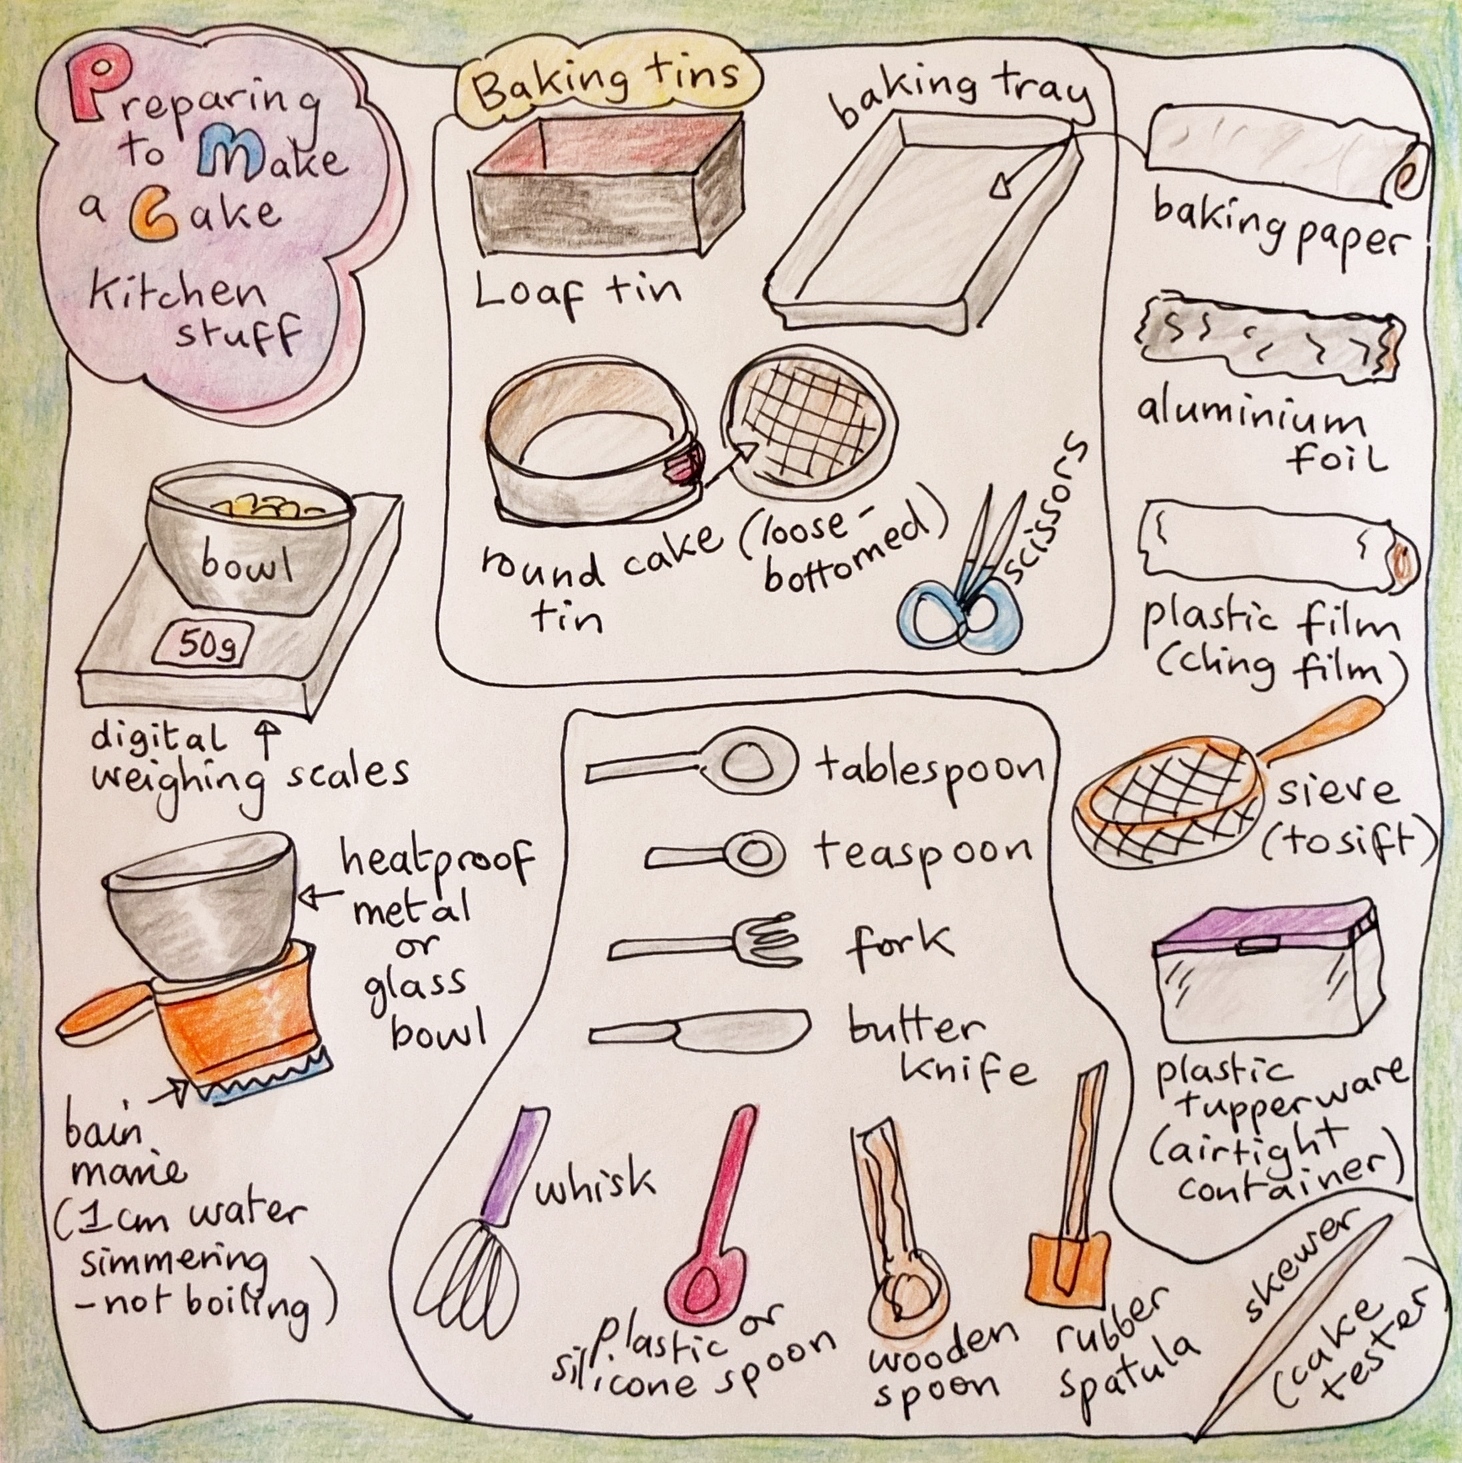 Preparing
to Make
a Cake
Kitchen
stuff
Baking tins
baking tray
Loaf tin
round cake
tin
(loose-
bottomed)
scissors
baking paper
aluminium
foil
plastic film
(cling film)
bowl
50g
digital
weighing scales
heatproof
metal
or
glass
bowl
bain
marie
(1cm water
simmering
-not boiling)
tablespoon
teaspoon
fork
butter
knife
whisk
plastic or
silicone spoon
wooden
spoon
rubber
spatula
sieve
(to sift)
plastic
tupperware
(airtight
container)
skewer
(cake
tester)